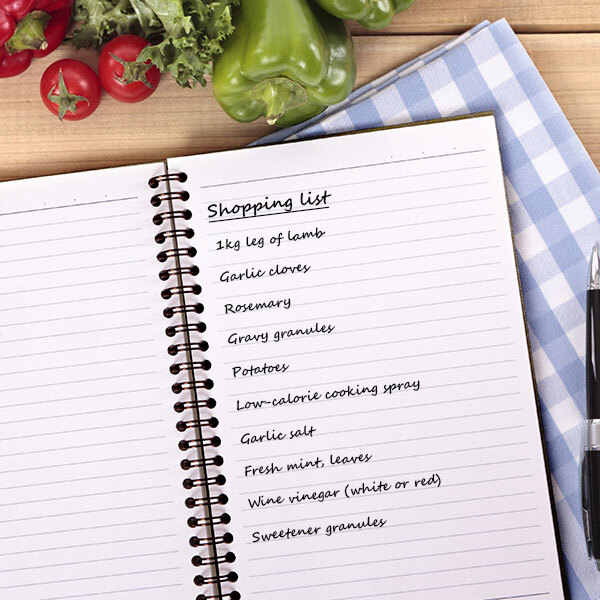 Shopping list
1kg leg of lamb
Garlic cloves
Rosemary
Gravy granules
Potatoes
Low-calorie cooking spray
Garlic salt
Fresh mint, leaves
Wine vinegar (white or red)
Sweetener granules